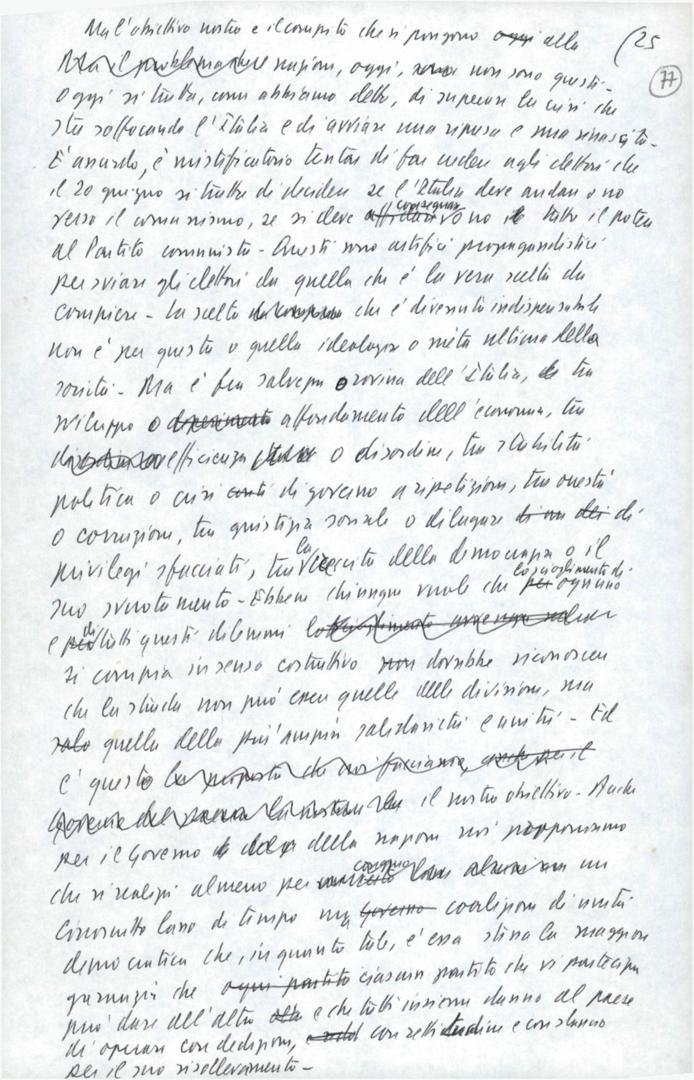 Ma l'obiettivo nostro e il compito che si pongono oggi alla (25
77
Ma il problema della nazione, oggi, non sono questi.
Oggi si tratta, come abbiamo detto, di superare la crisi che
sta soffocando l'Italia e di avviare una ripresa e una rinascita.
E' assurdo, è mistificatorio tentare di far credere agli elettori che
il 20 giugno si tratti di decidere se l'Italia deve andare o no
verso il comunismo, se si deve affidare consegnare o no tutto il potere
al Partito comunista. Questi sono artifici propagandistici
per sviare gli elettori da quella che è la vera scelta da
compiere. La scelta da compiere che è divenuta indispensabile
non è per questa o quella ideologia o mèta ultima della
società. Ma è fra salvezza o rovina dell'Italia, tra
sviluppo o affondamento dell'economia, tra
efficienza o disordine, tra stabilità
politica o crisi di governo a ripetizione, tra onestà
o corruzione, tra giustizia sociale o dilagare di
privilegi sfacciati, tra la crescita della democrazia o il
suo svuotamento. Ebbene chiunque vuole che lo scioglimento di ognuno
e di tutti questi dilemmi lo scioglimento avvenga
si compia in senso costruttivo non dovrebbe riconoscere
che la strada non può essere quella delle divisioni, ma
solo quella della più ampia solidarietà e unità. Ed
è questo la proposta che noi facciamo, anche per il
Governo del paese il nostro obiettivo. Anche
per il Governo della nazione noi proponiamo
che si realizzi almeno per un congruo
circoscritto lasso di tempo una Governo coalizione di unità
democratica che, in quanto tale, è essa stessa la maggiore
garanzia che ogni partito ciascun partito che vi partecipa
può dare all'altro e che tutti insieme danno al paese
di operare con dedizione, con rettitudine e con slancio
per il suo risollevamento.